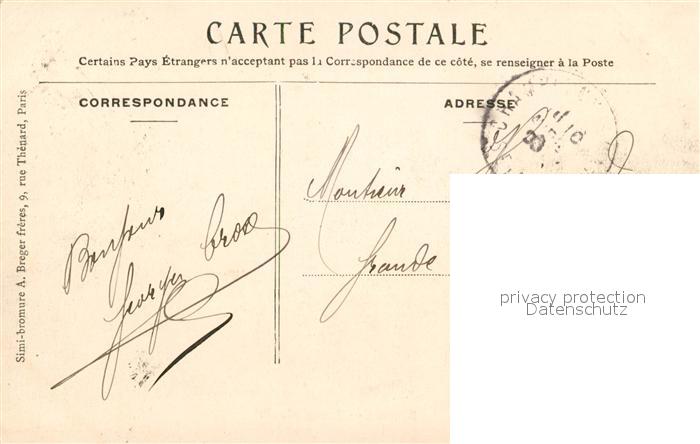 CARTE POSTALE
Certains Pays Étrangers n'acceptant pas la Correspondance de ce côté, se renseigner à la Poste
CORRESPONDANCE
ADRESSE
Simi-bromure A. Breger frères, 9, rue Thénard, Paris
Bonjour
Georges
Monsieur
Grande
privacy protection
Datenschutz